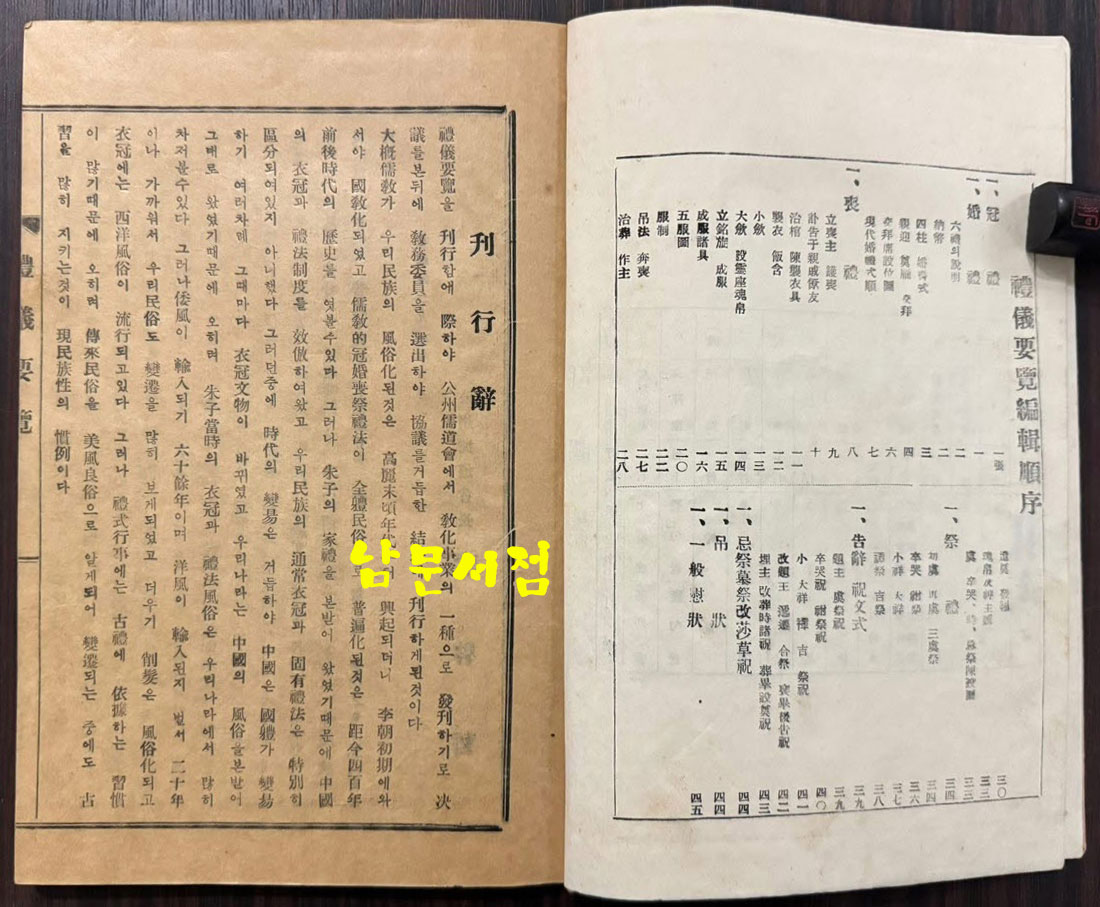 禮儀要覽編輯順序
一、冠禮 一張
一、婚禮 一
六禮의說明 二
納幣 二
四柱 婚書式 三
親迎 奠雁 交拜 四
交拜席設位圖 六
現代婚禮式順 七
一、喪禮 八
立喪主 護喪 九
訃告于親戚僚友 十
治棺 陳襲衣具 一一
襲衣 飯含 一二
小斂 一三
大斂 設靈座魂帛 一四
立銘旌 成服 一五
成服諸具 一六
五服圖 二〇
服制 二二
吊法 奔喪 二七
治葬 作主 二八
遣奠 三〇
魂帛 三三
卒哭、 三三
一、祭禮 三四
初虞 再虞 三虞祭 三四
卒哭 祔祭 三六
小祥 大祥 三七
禫祭 吉祭 三八
一、告辭 祝文式 三九
題主 虞祭祝 三九
卒哭祝 祔祭祝 四〇
小 大祥 禫 吉 祭祝 四一
改題主 遞遷 合祭 喪畢後告祝 四二
埋主 改葬時諸祝 葬畢設奠祝 四三
一、忌祭墓祭改莎草祝 四四
一、吊狀 四四
一、一般慰狀 四五
刊行辭
禮儀要覽을 刊行함애 際하야 公州儒道會에서 敎化事業의 一種으로 發刊하기로 決
議를본뒤에 敎務委員을 選出하야 協議를거듭한 結 刊行하게된것이다
大槪儒敎가 우리民族의 風俗化된것은 高麗末頃年代 興起되더니 李朝初期에와
서야 國敎化되였고 儒敎的冠婚喪祭禮法이 全體民俗 普遍化된것은 距今四百年
前後時代의 歷史를 엿볼수있다 그러나 朱子의 家禮를 본받어 왔였기때문에 中國
의 衣冠과 禮法制度를 效倣하여왔고 우리民族의 通常衣冠과 固有禮法은 特別히
區分되여있지 아니했다 그러던중에 時代의 變易은 거듭하야 中國은 國體가 變易
하기 여러차례 그때마다 衣冠文物이 바뀌였고 우리나라는 中國의 風俗을본받어
그대로 왔였기때문에 오히려 朱子當時의 衣冠과 禮法風俗은 우리나라에서 많히
차저볼수있다 그러나倭風이 輸入되기 六十餘年이며 洋風이 輸入된지 벌서 二十年
이나 가까워서 우리民俗도 變遷을 많히 보게되었고 더우기 削髮은 風俗化되고
衣冠에는 西洋風俗이 流行되고있다 그러나 禮式行事에는 古禮에 依據하는 習慣
이 많기때문에 오히려 傳來民俗을 美風良俗으로 알게되어 變遷되는 中에도 古
習을 많히 지키는것이 現民族性의 慣例이다
禮儀要覽
남문서점